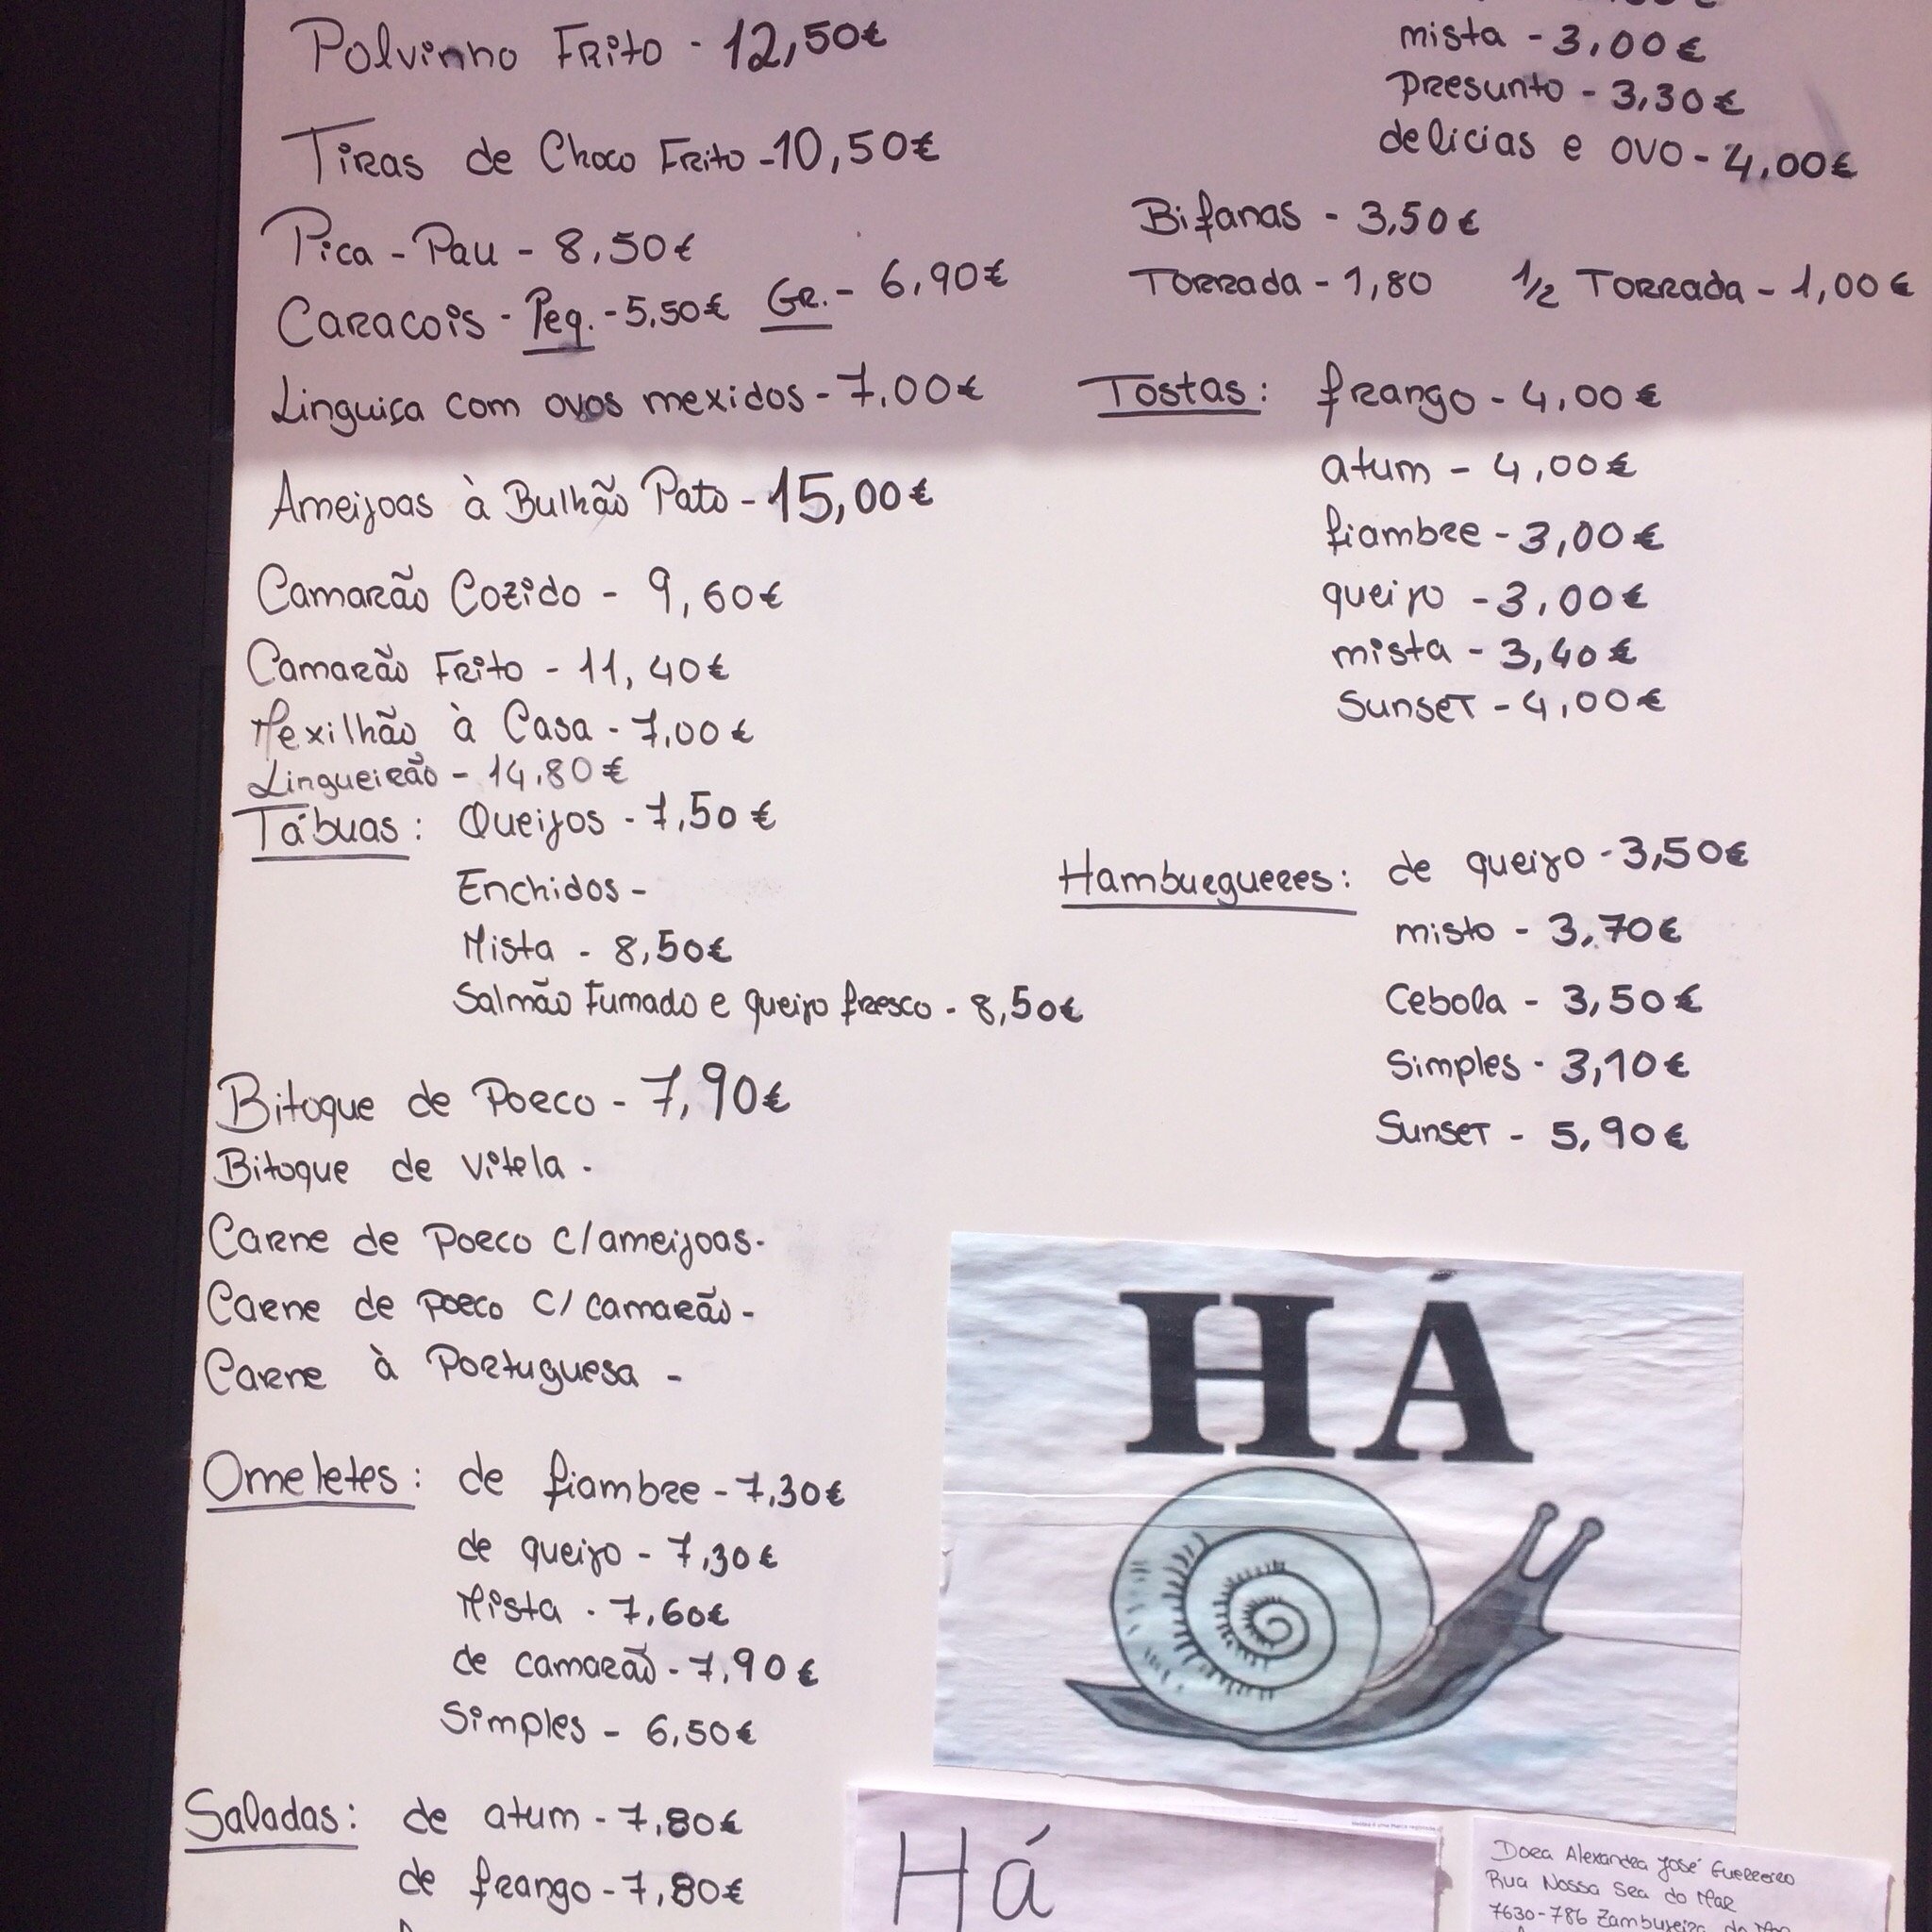 Polvinho Frito - 12,50€
Tiras de Choco Frito - 10,50€
Pica - Pau - 8,50€
Caracois - Peq. - 5,50€ Gr. - 6,90€
Linguiça com ovos mexidos - 7,00€
Ameijoas à Bulhão Pato - 15,00€
Camarão Cozido - 9,60€
Camarão Frito - 11,40€
Mexilhão à Casa - 7,00€
Lingueirão - 14,80€
Tábuas: Queijos - 7,50€
Enchidos -
Mista - 8,50€
Salmão Fumado e queijo fresco - 8,50€
Bitoque de Porco - 7,90€
Bitoque de Vitela -
Carne de Porco c/ameijoas -
Carne de porco c/ camarão -
Carne à Portuguesa -
Omeletes: de fiambre - 7,30€
de queijo - 7,30€
Mista - 7,60€
de camarão - 7,90€
Simples - 6,50€
Saladas: de atum - 7,80€
de frango - 7,80€
mista - 3,00€
Presunto - 3,30€
delicias e ovo - 4,00€
Bifanas - 3,50€
Torrada - 1,80 1/2 Torrada - 1,00€
Tostas: frango - 4,00€
atum - 4,00€
fiambre - 3,00€
queijo - 3,00€
mista - 3,40€
Sunset - 4,00€
Hamburgueres: de queijo - 3,50€
misto - 3,70€
Cebola - 3,50€
Simples - 3,10€
Sunset - 5,90€
HÁ
Há
Dora Alexandra José Guerreiro
Rua Nossa Sra do Mar
7630-786 Zambujeira do Mar